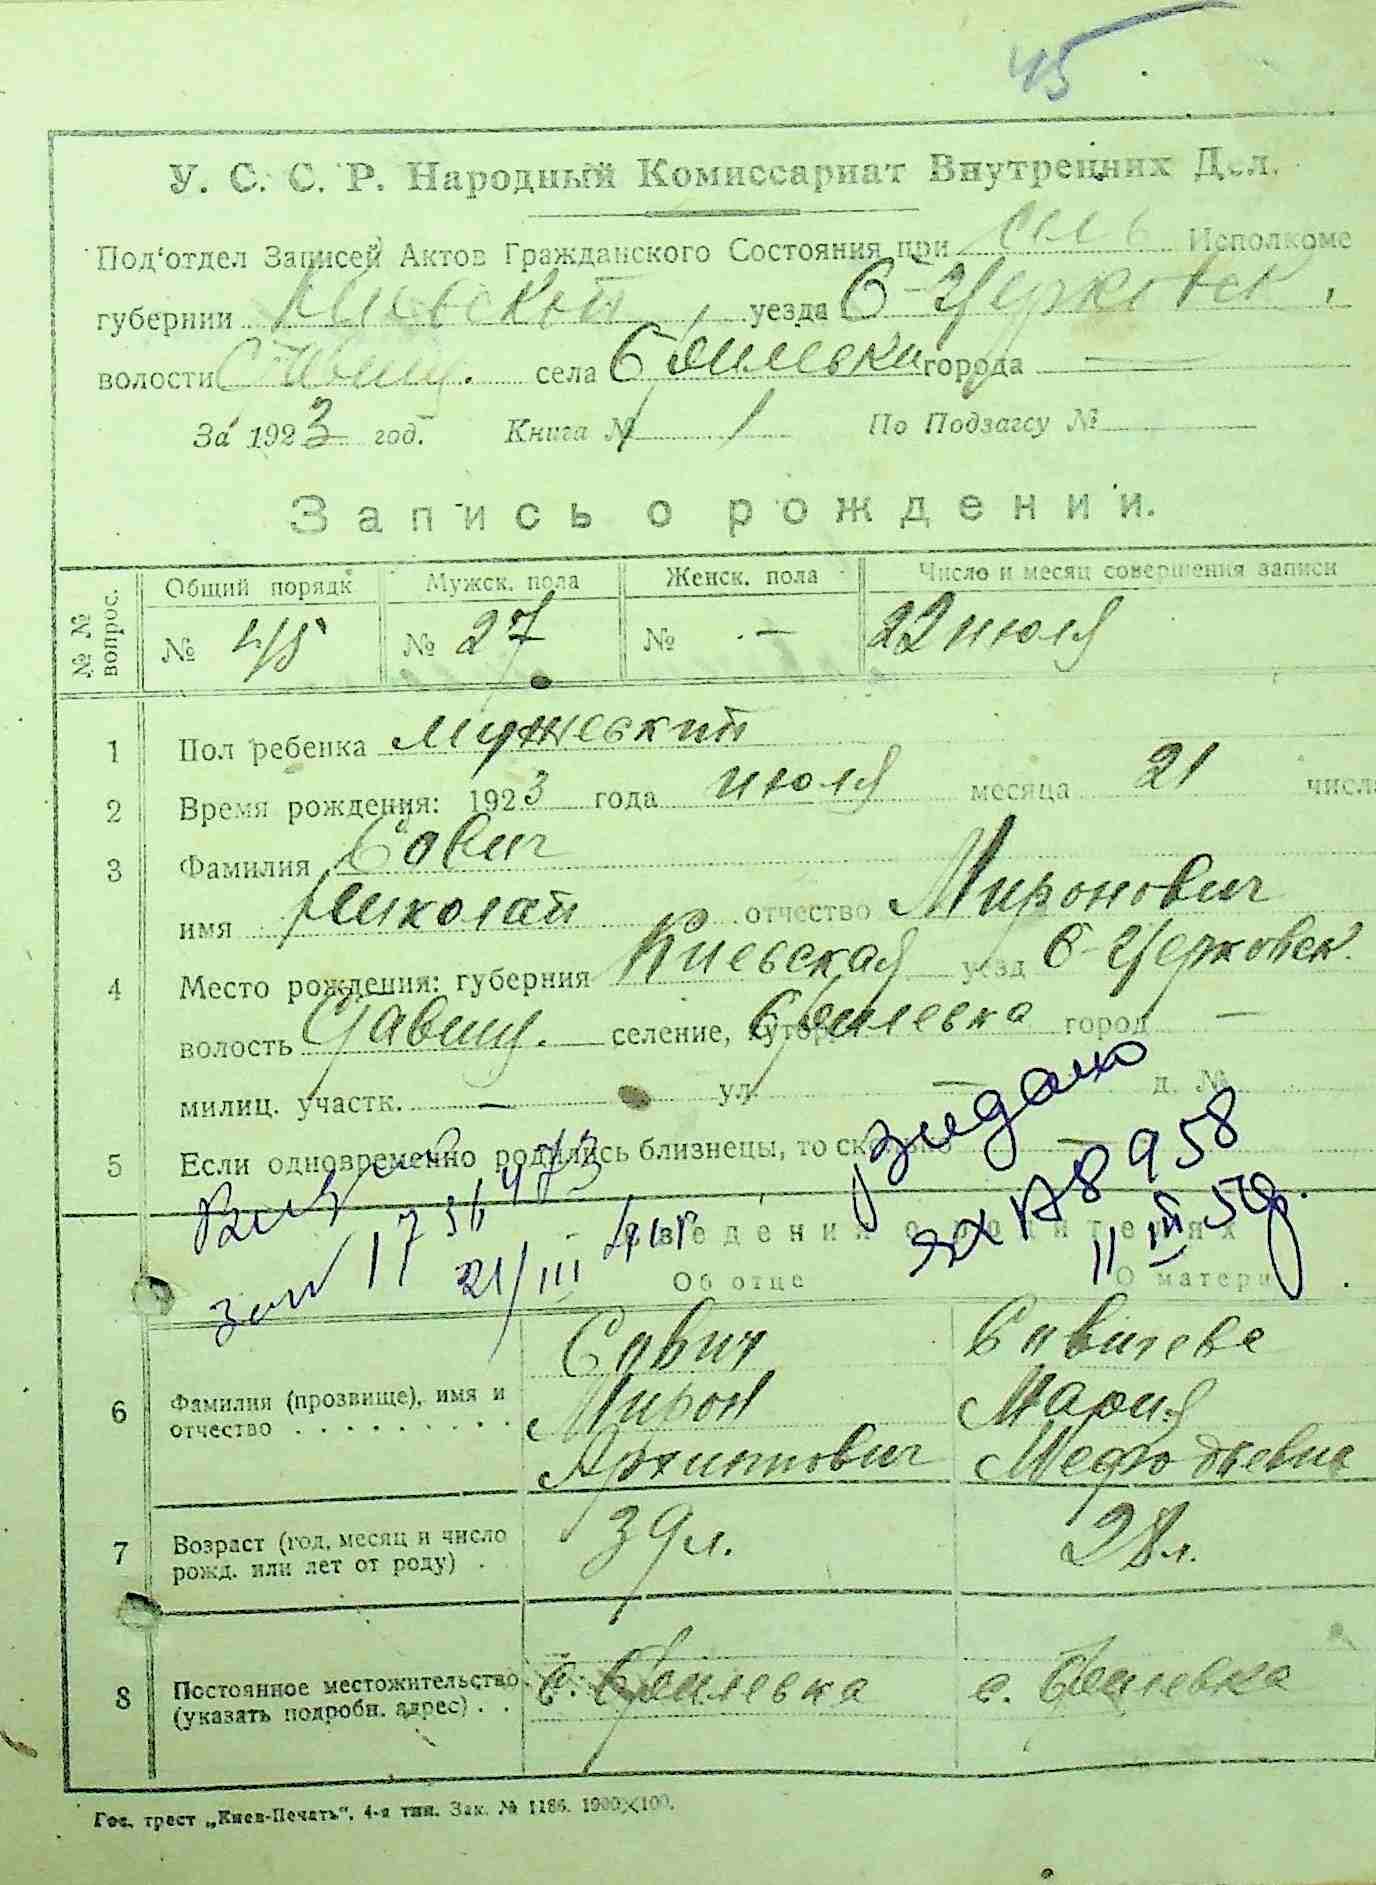 45
У. С. С. Р. Народный Комиссариат Внутренних Дел.
Под'отдел Записей Актов Гражданского Состояния при сель Исполкоме
губернии Киевской уезда Б-Церковск.
волости Ставищ. села города —
За 1923 год. Книга № 1 По Подзагсу №
Запись о рождении.
№ № вопрос. Общий порядк Мужск. пола Женск. пола Число и месяц совершения записи
№ 45 № 27 № — 22 июля
1 Пол ребенка мужеский
2 Время рождения: 1923 года июля месяца 21 числа
3 Фамилия Савич
имя Николай отчество Миронович
4 Место рождения: губерния Киевская уезд Б-Церковск.
волость Ставищ. селение, хутор город —
милиц. участк. — ул. — д. №
5 Если одновременно родились близнецы, то сколько —
видано
11 III 59
21/III
Сведения о родителях
Об отце О матери
6 Фамилия (прозвище), имя и отчество Савич Мирон Архиппович Савичева Мария Мефодьевна
7 Возраст (год, месяц и число рожд. или лет от роду) 39 л. 28 л.
8 Постоянное местожительство (указать подробн. адрес) с. с.
Гос. трест „Киев-Печать". 4-я тип. Зак. № 1186. 1000×100.